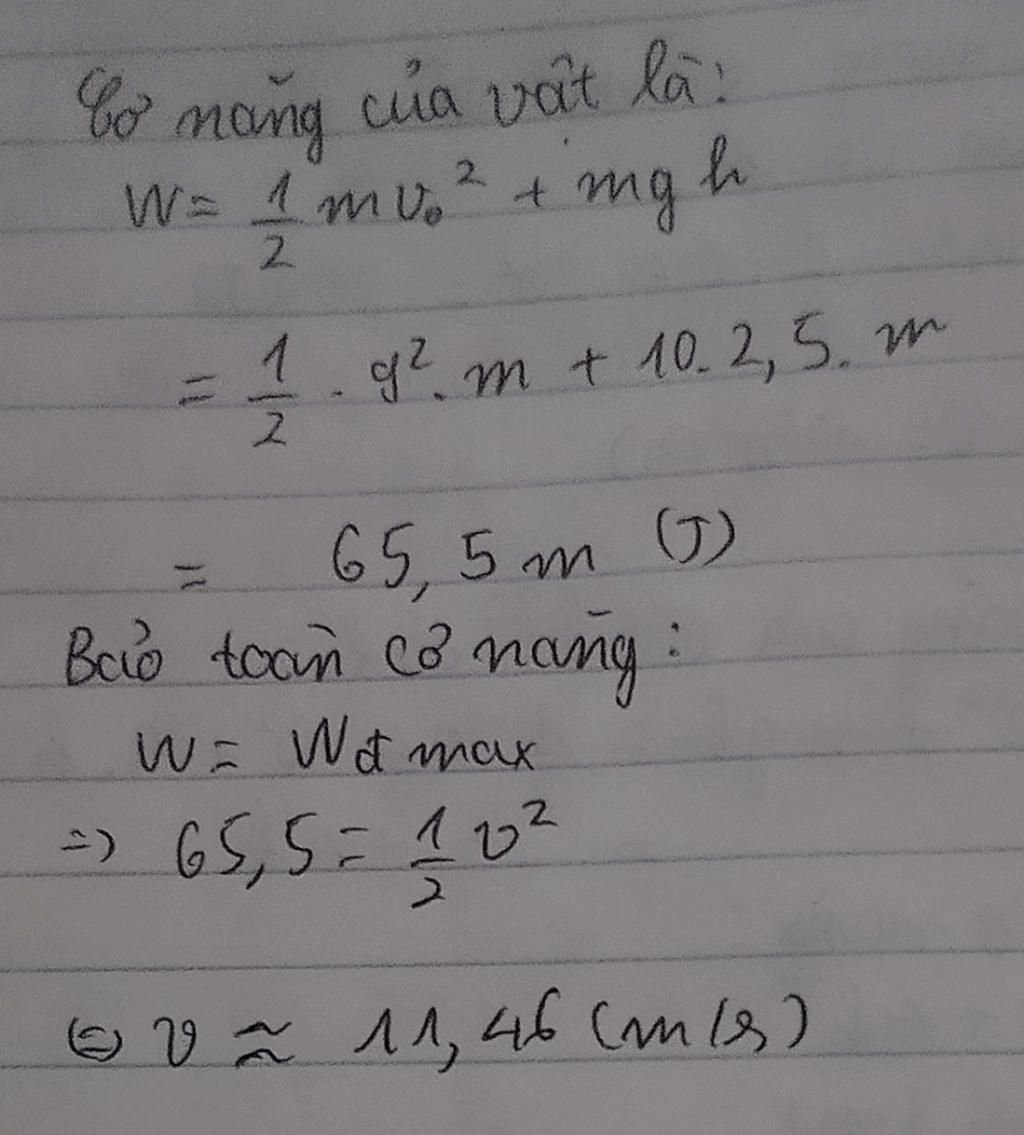 Cơ năng của vật là:
W = 1/2 mv₀² + mgh
= 1/2 . 9² . m + 10. 2,5. m
= 65,5 m (J)
Bảo toàn cơ năng:
W = Wđ max
=> 65,5 = 1/2 v²
⇔ v ≈ 11,46 (m/s)